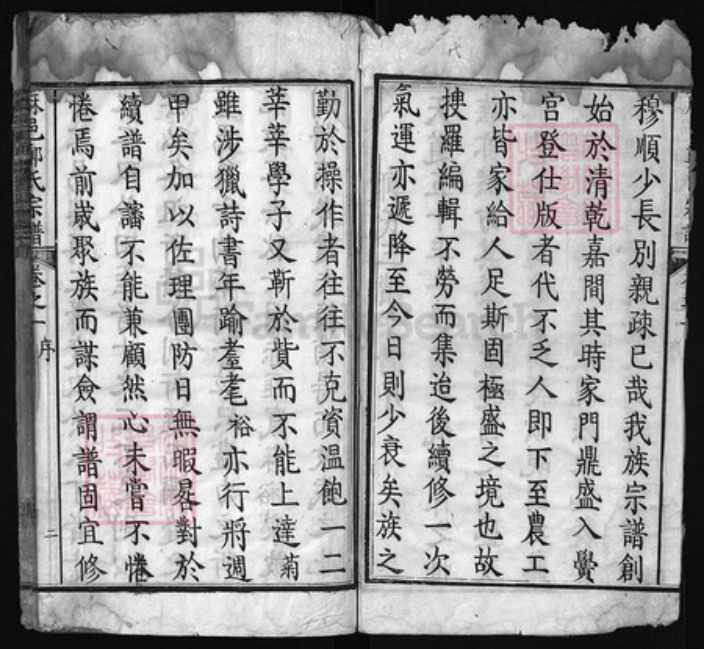 穆順少長別親疎已哉我族宗譜創
始於清乾嘉間其時家門鼎盛入黌
宮登仕版者代不乏人即下至農工
亦皆家給人足斯固極盛之境也故
搜羅編輯不勞而集迨後續修一次
氣運亦遞降至今日則少衰矣族之
勤於操作者往往不克資溫飽一二
莘莘學子又靳於貲而不能上達菊
雖涉獵詩書年踰耄耋裕亦行將週
甲矣加以佐理團防日無暇晷對於
續譜自審不能兼顧然心未嘗不惓
惓焉前歲聚族而謀僉謂譜固宜修
氏宗譜 卷之一 序 二
FamilySearch